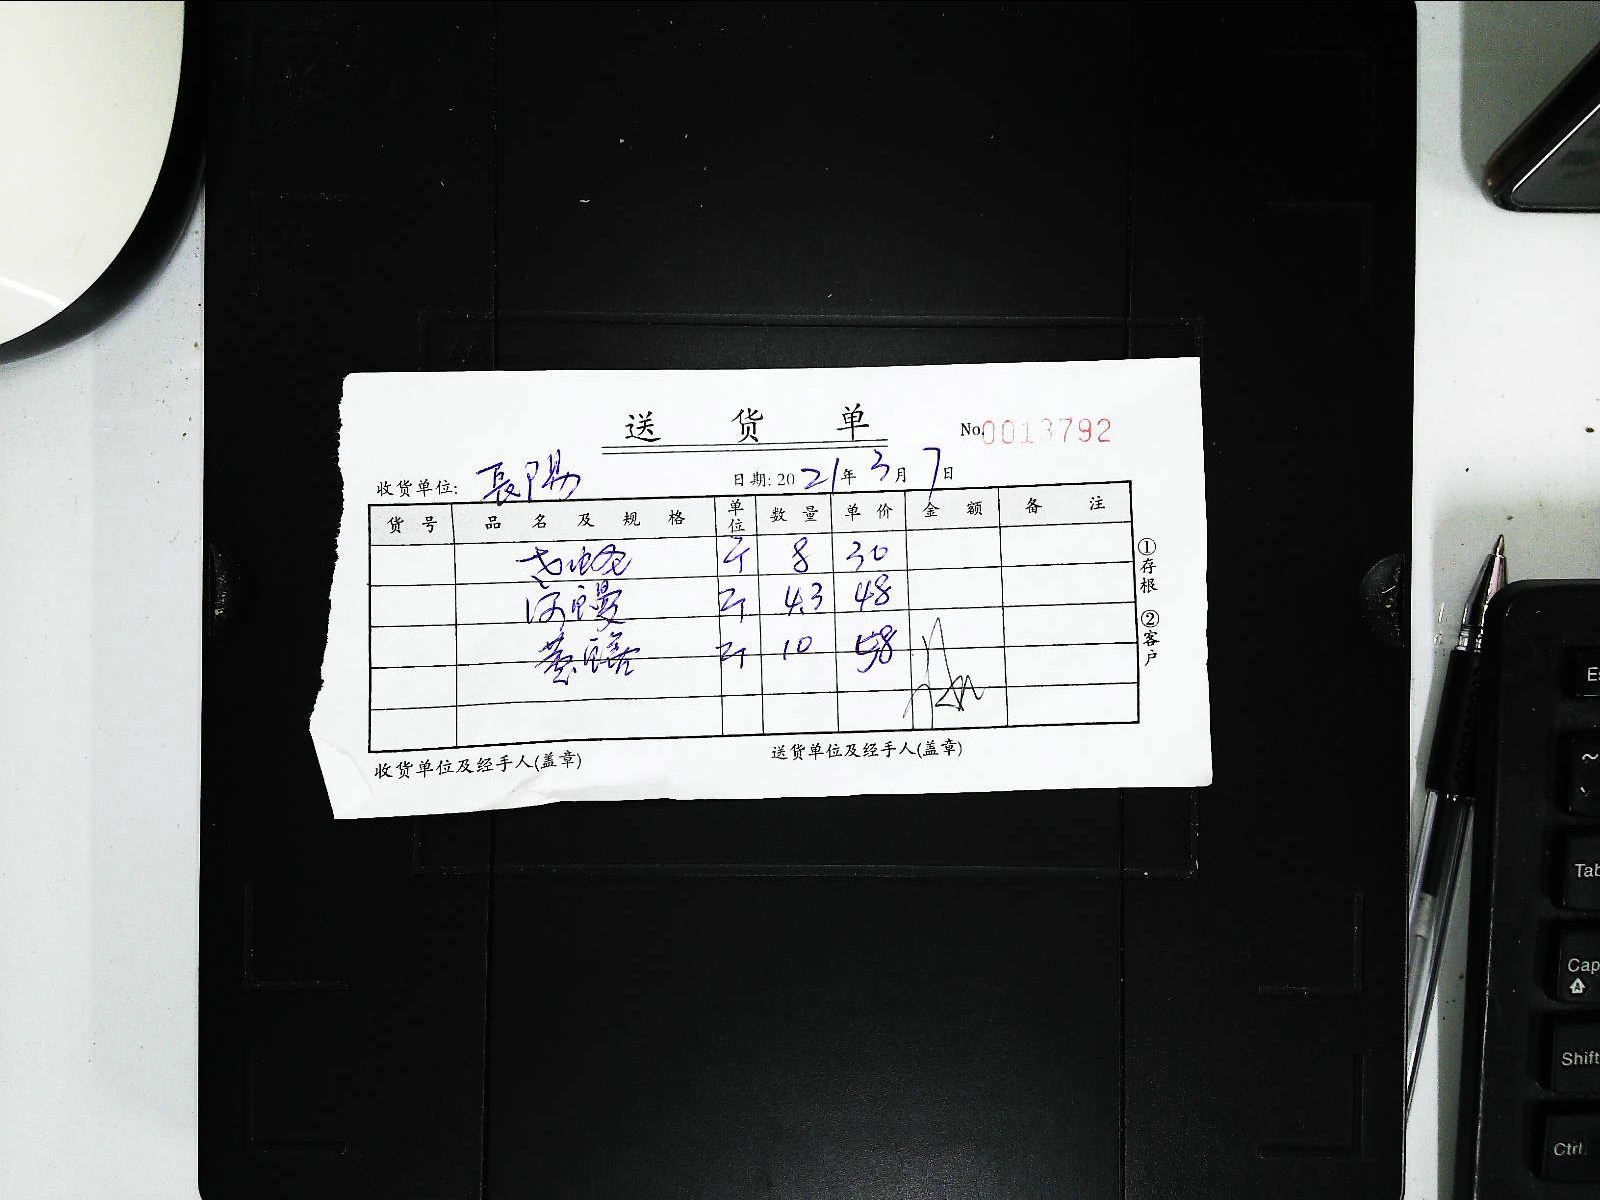 送货单
No.0013792
收货单位: 長阳
日期: 2021年3月7日
货号 品名及规格 单位 数量 单价 金额 备注
斤 8 30
河鳗 斤 4.3 48
斤 10 58
①存根 ②客户
收货单位及经手人(盖章) 送货单位及经手人(盖章)
Tab
Cap
Shift
Ctrl